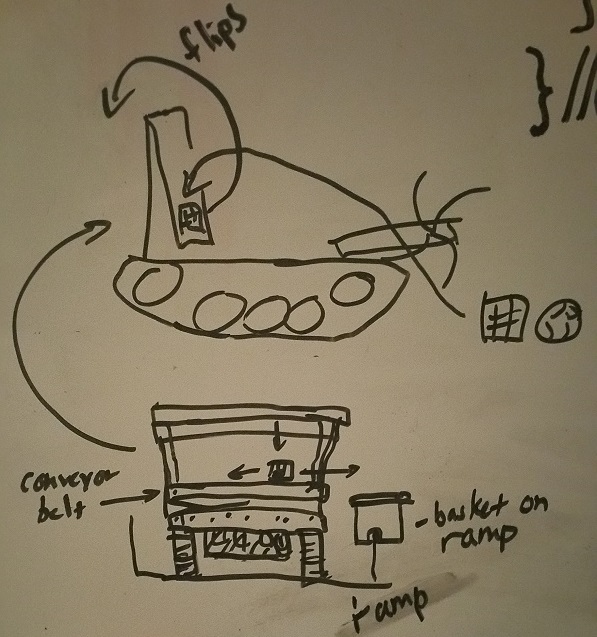 flips
} //
conveyor
belt
- basket on
ramp
ramp